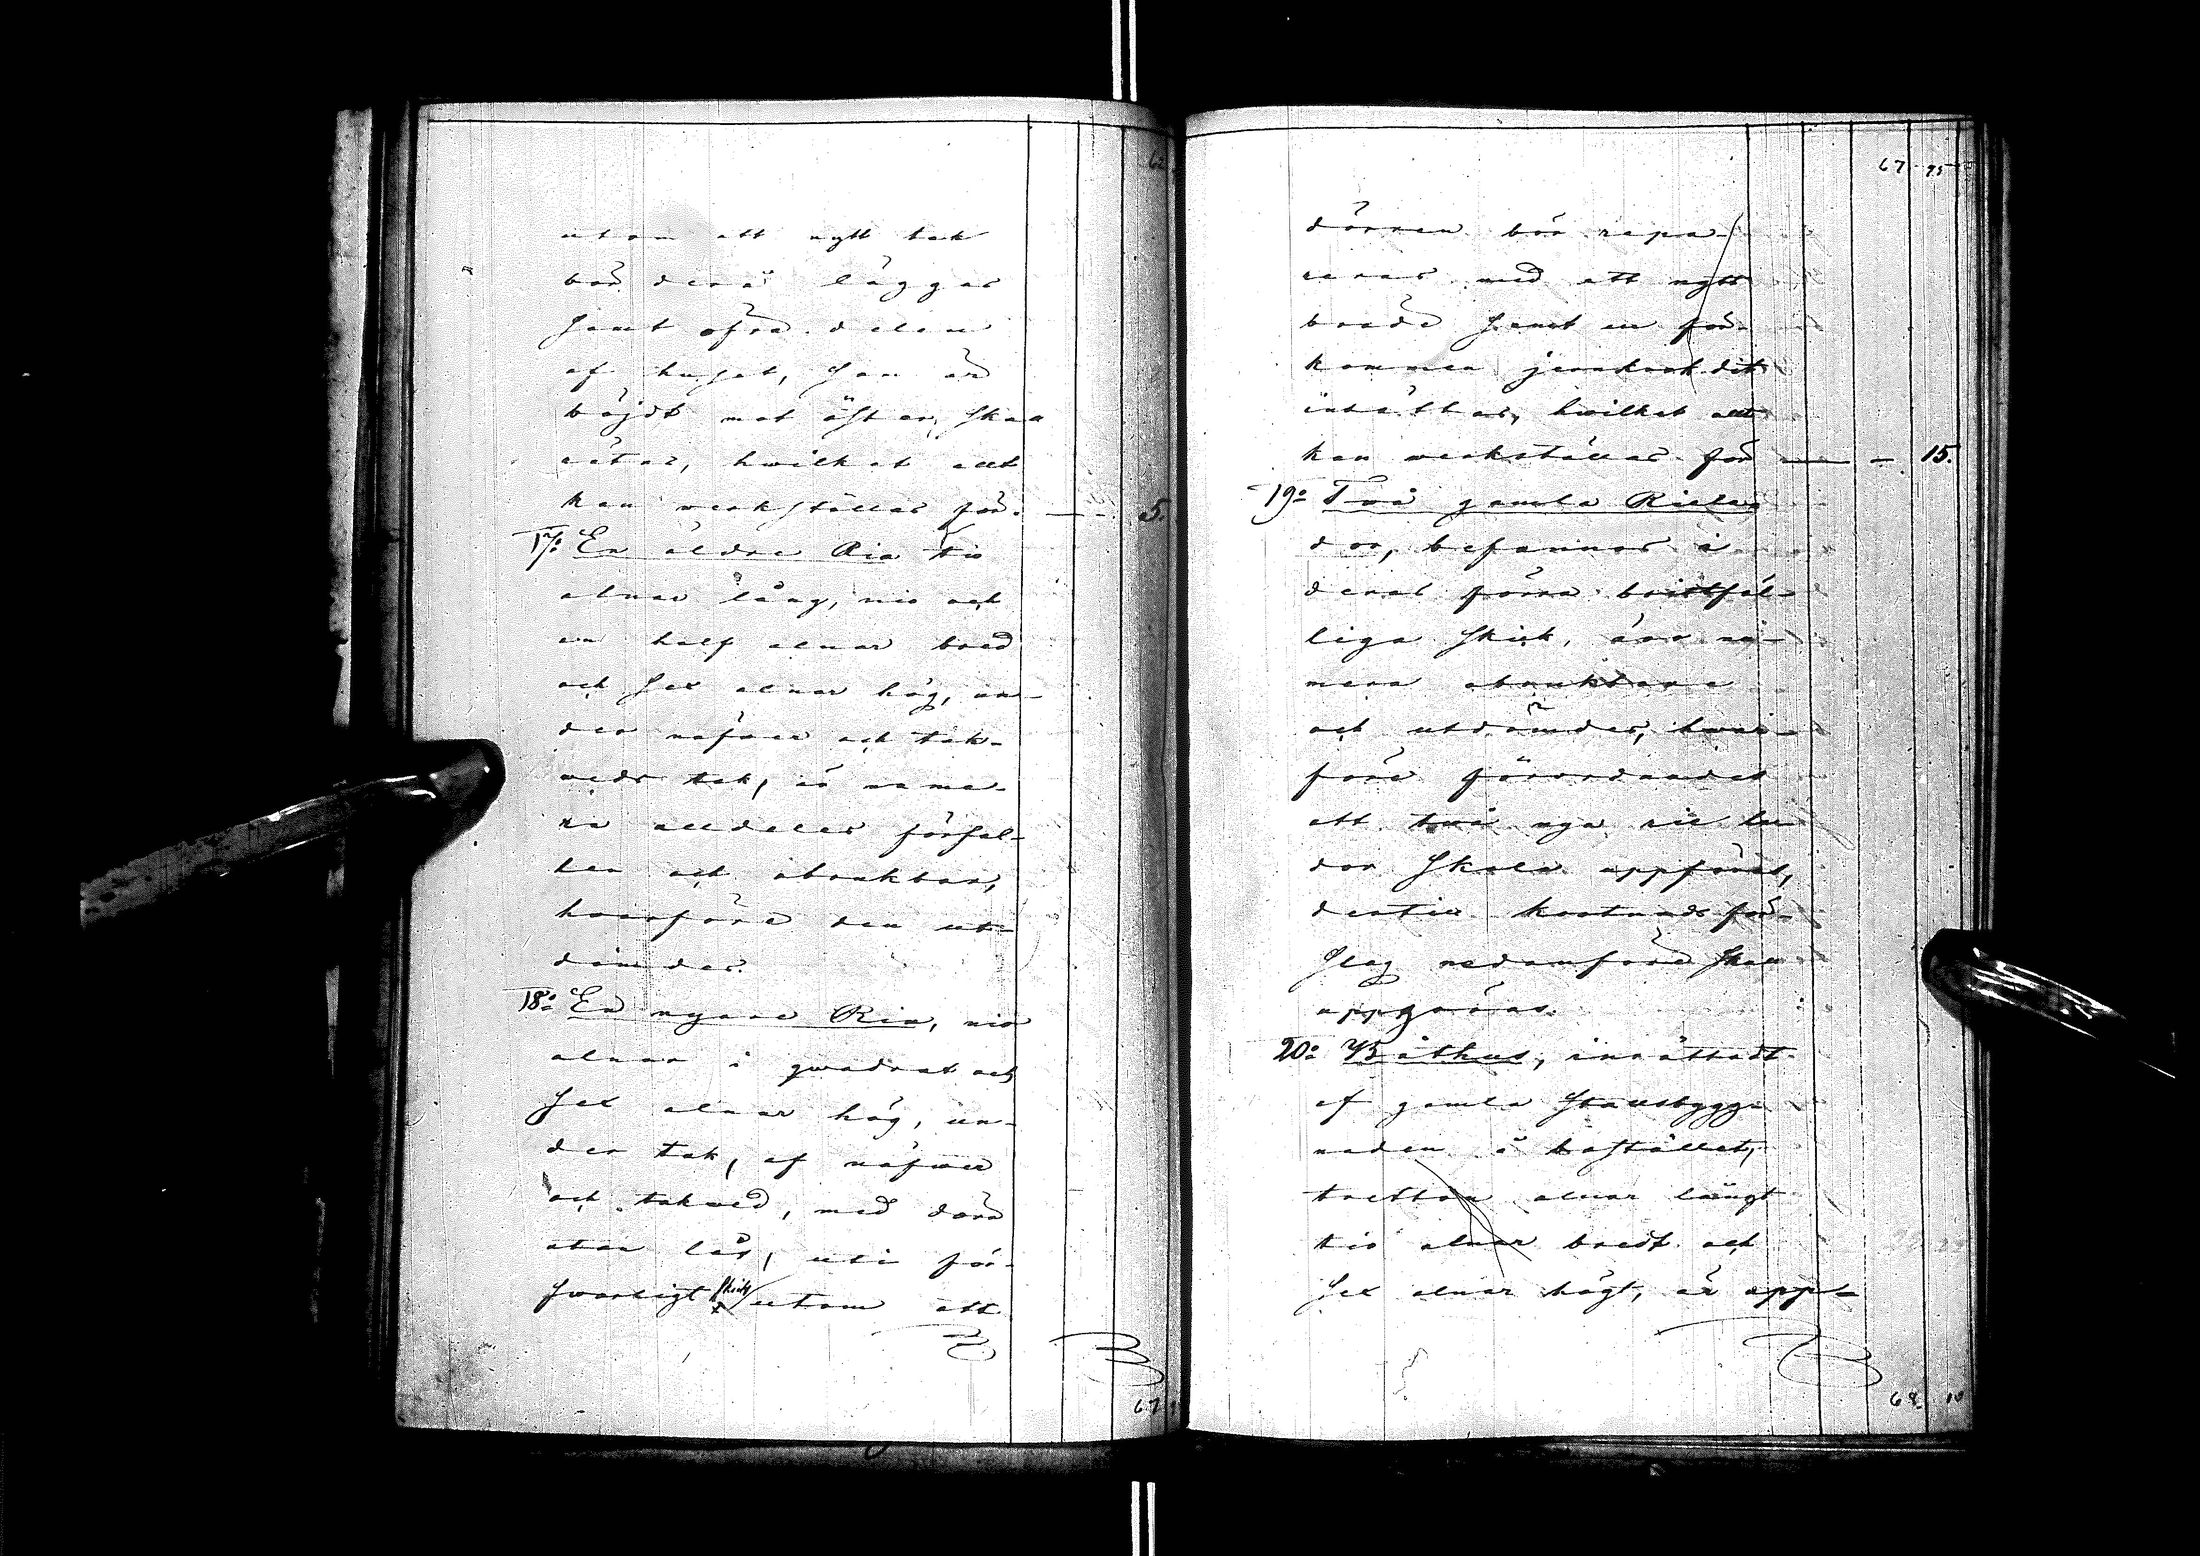 utom ett nytt tak
bör derå läggas
samt öfra delen
af huset, som är
böjdt mot öster, skall
rätas, hwilket allt
kan werkställas för 5.
17:o En äldre Ria tio
alnar lång, nio och
en half alnar bred
och sex alnar hög, un-
der näfver och tak-
veds tak, är nume-
ra alldeles förfal-
len och obrukbar,
hvarföre den ut-
dömdes.
18:o En nyare Ria, nio
alnar i qwadrat och
sex alnar hög, un-
der tak, af näfver
och takved, med dörr
utan lås, uti för-
swarligt skick utom att
67
67 95
dörren bör repa-
reras med ett nytt
bräde samt en för-
kommen jernkrok dit
insättas, hwilket allt
kan werkställas för 15.
19:o Två gamla Riela-
dor, befunnos i
deras förra bristfäl-
liga skick, äro nu-
mera obrukbara
och utdömdes, hwar-
före förordnades
att två nya rie la-
dor skola uppföras,
dertill kostnads för-
slag nedanföre skall
uppgöras.
20:o Båthus, inrättadt
af gamla Stallsbygg-
naden å bostället,
tretton alnar långt
tio alnar bredt och
sex alnar högt, är upp-
68 10